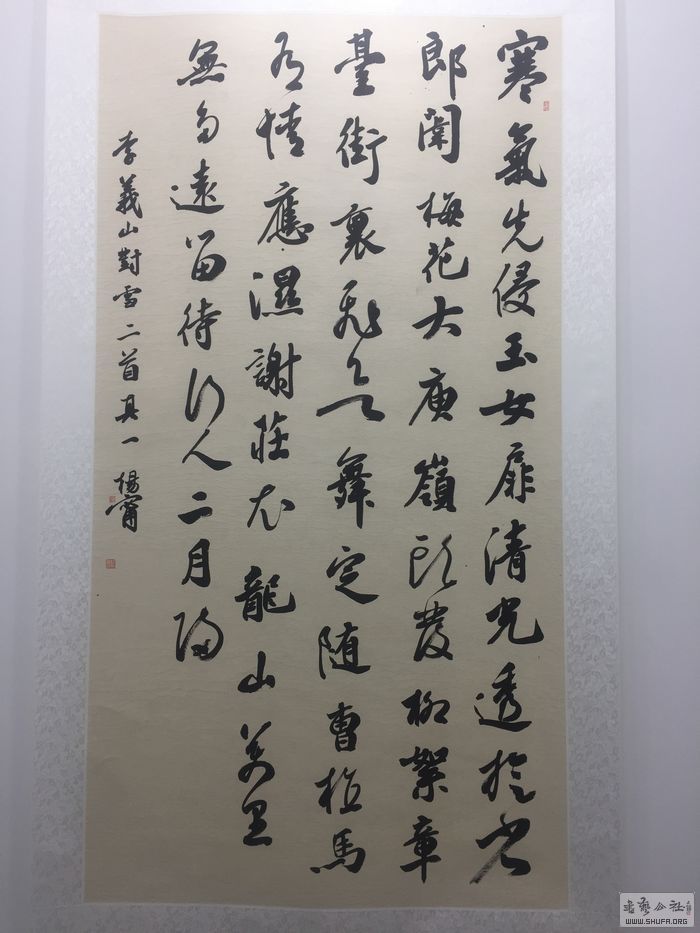 寒氣先侵玉女扉清光透旋省
郎闈梅花大庾嶺頭發柳絮章
臺街裏飛欲舞定随曹植馬
有情應濕謝莊衣龍山萬里
無多遠留待行人二月歸
李義山對雪二首其一 楊甯
書藝公社
WWW.SHUFA.ORG